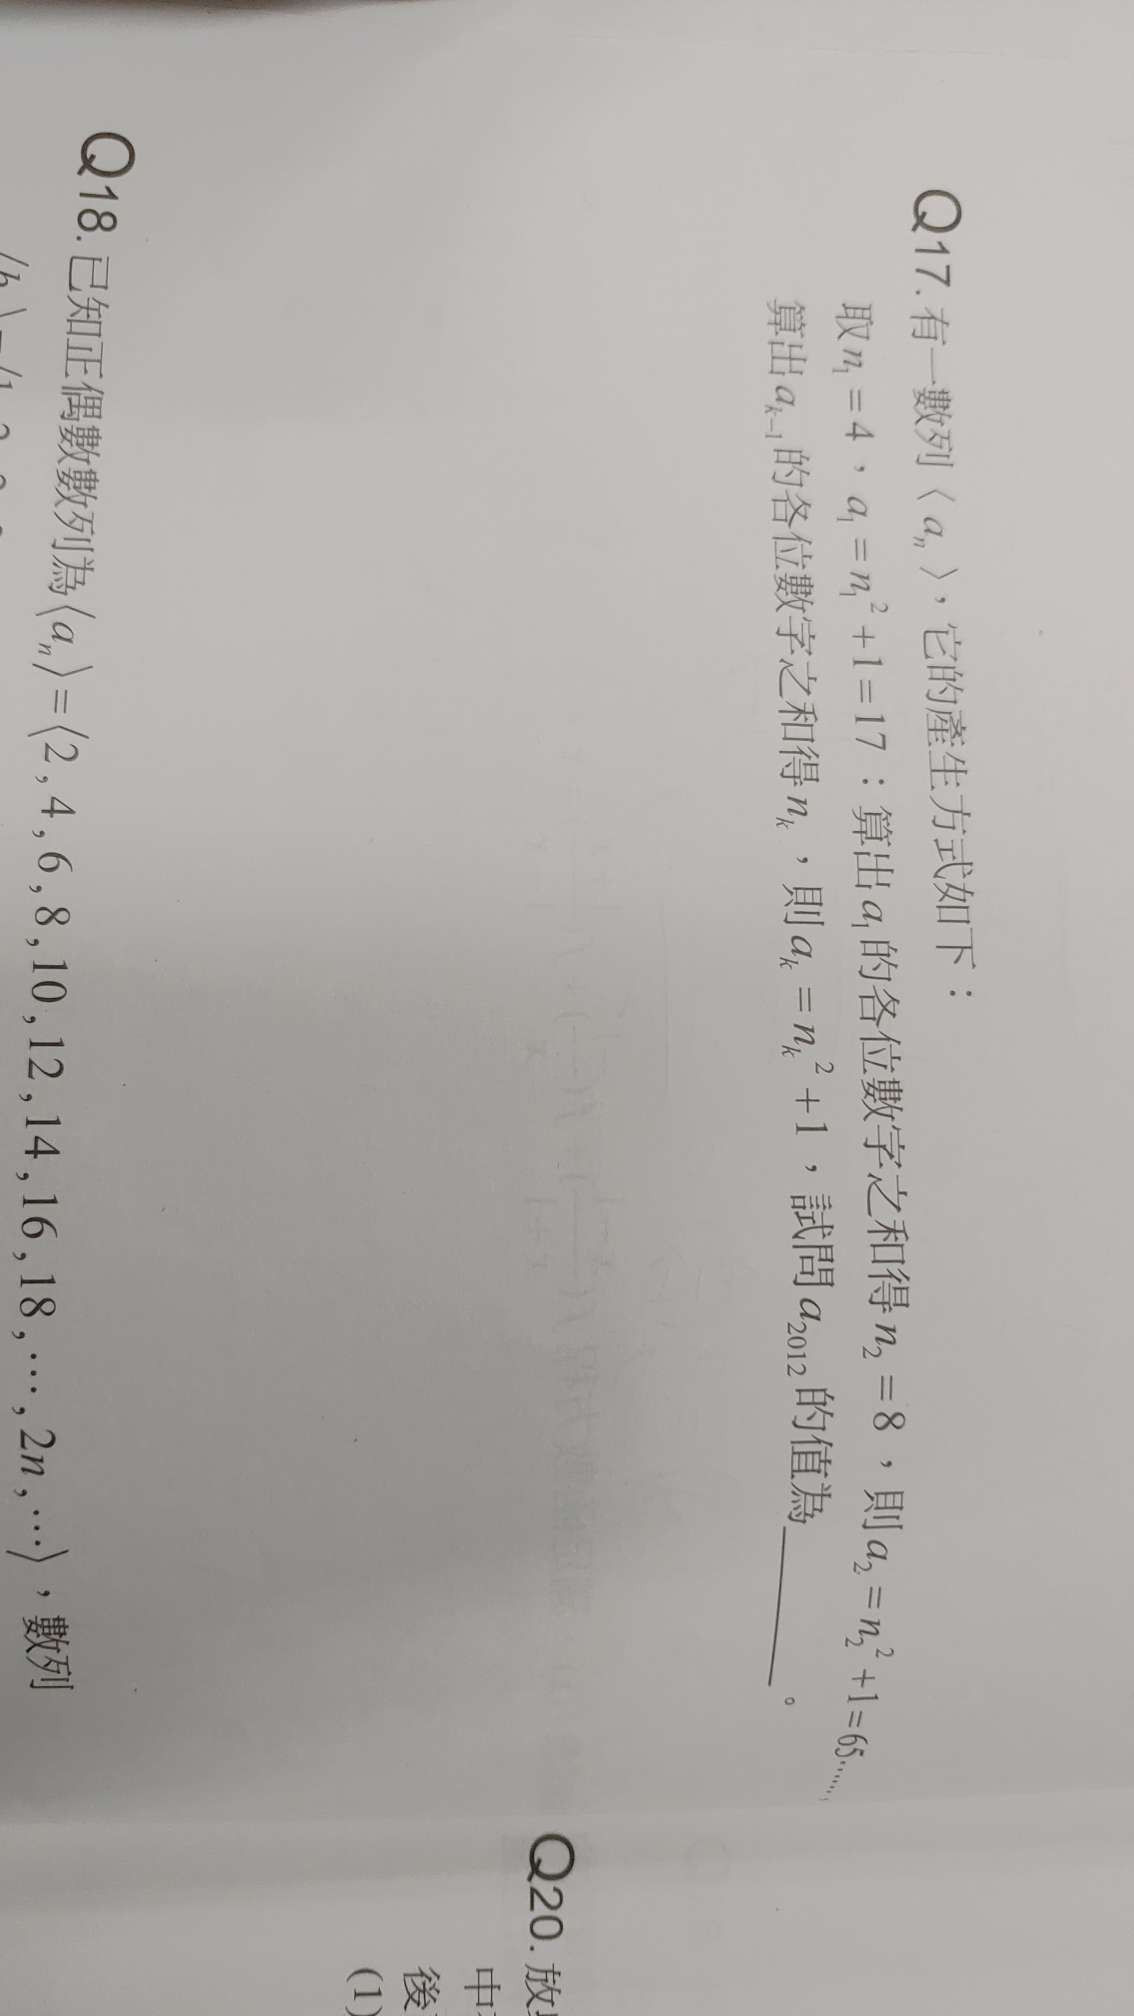 Q17. 有一數列〈aₙ〉,它的產生方式如下:
取 n₁ = 4,a₁ = n₁² + 1 = 17:算出 a₁ 的各位數字之和得 n₂ = 8,則 a₂ = n₂² + 1 = 65……,
算出 aₖ₋₁ 的各位數字之和得 nₖ,則 aₖ = nₖ² + 1,試問 a₂₀₁₂ 的值為______。
Q18. 已知正偶數數列為〈aₙ〉=〈2 , 4 , 6 , 8 , 10 , 12 , 14 , 16 , 18 , … , 2n , …〉,數列
Q20. 放
中
後
(1)